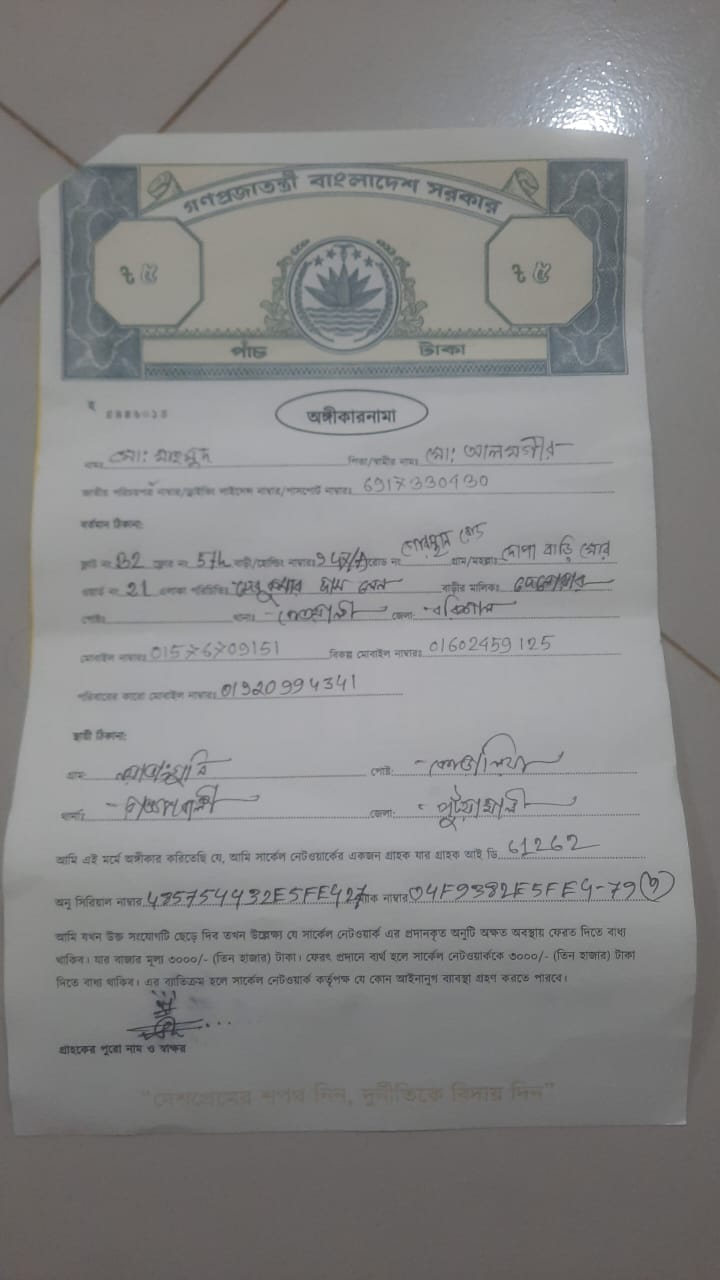 গণপ্রজাতন্ত্রী বাংলাদেশ সরকার
৳ ৫ ৳ ৫
পাঁচ টাকা
অঙ্গীকারনামা
নামঃ মো: মাহমুদ পিতা/স্বামীর নামঃ মো: আলমগীর
জাতীয় পরিচয়পত্র নাম্বার/ড্রাইভিং লাইসেন্স নাম্বার/পাসপোর্ট নাম্বারঃ 6917330430
বর্তমান ঠিকানা:
ফ্ল্যাট নং B2 ফ্লোর নং 5th বাড়ী/হোল্ডিং নাম্বারঃ রোড নং গ্রাম/মহল্লাঃ
ওয়ার্ড নং 21 এলাকা পরিচিতিঃ বাড়ীর মালিকঃ
পোষ্টঃ থানাঃ জেলা: বরিশাল
মোবাইল নাম্বারঃ 01576709151 বিকল্প মোবাইল নাম্বারঃ 01602459125
পরিবারের কারো মোবাইল নাম্বারঃ 01920994341
স্থায়ী ঠিকানা:
গ্রাম: পোষ্ট:
থানাঃ জেলা: পটুয়াখালী
আমি এই মর্মে অঙ্গীকার করিতেছি যে, আমি সার্কেল নেটওয়ার্কের একজন গ্রাহক যার গ্রাহক আই ডি 61262
অনু সিরিয়াল নাম্বার ম্যাক নাম্বার 04F9382E5FE4-79
আমি যখন উক্ত সংযোগটি ছেড়ে দিব তখন উল্লেক্ষ্য যে সার্কেল নেটওয়ার্ক এর প্রদানকৃত অনুটি অক্ষত অবস্থায় ফেরত দিতে বাধ্য
থাকিব। যার বাজার মূল্য ৩০০০/- (তিন হাজার) টাকা। ফেরৎ প্রদানে ব্যর্থ হলে সার্কেল নেটওয়ার্ককে ৩০০০/- (তিন হাজার) টাকা
দিতে বাধ্য থাকিব। এর ব্যতিক্রম হলে সার্কেল নেটওয়ার্ক কর্তৃপক্ষ যে কোন আইনানুগ ব্যবস্থা গ্রহণ করতে পারবে।
গ্রাহকের পুরো নাম ও স্বাক্ষর
"দেশপ্রেমের শপথ নিন, দুর্নীতিকে বিদায় দিন"